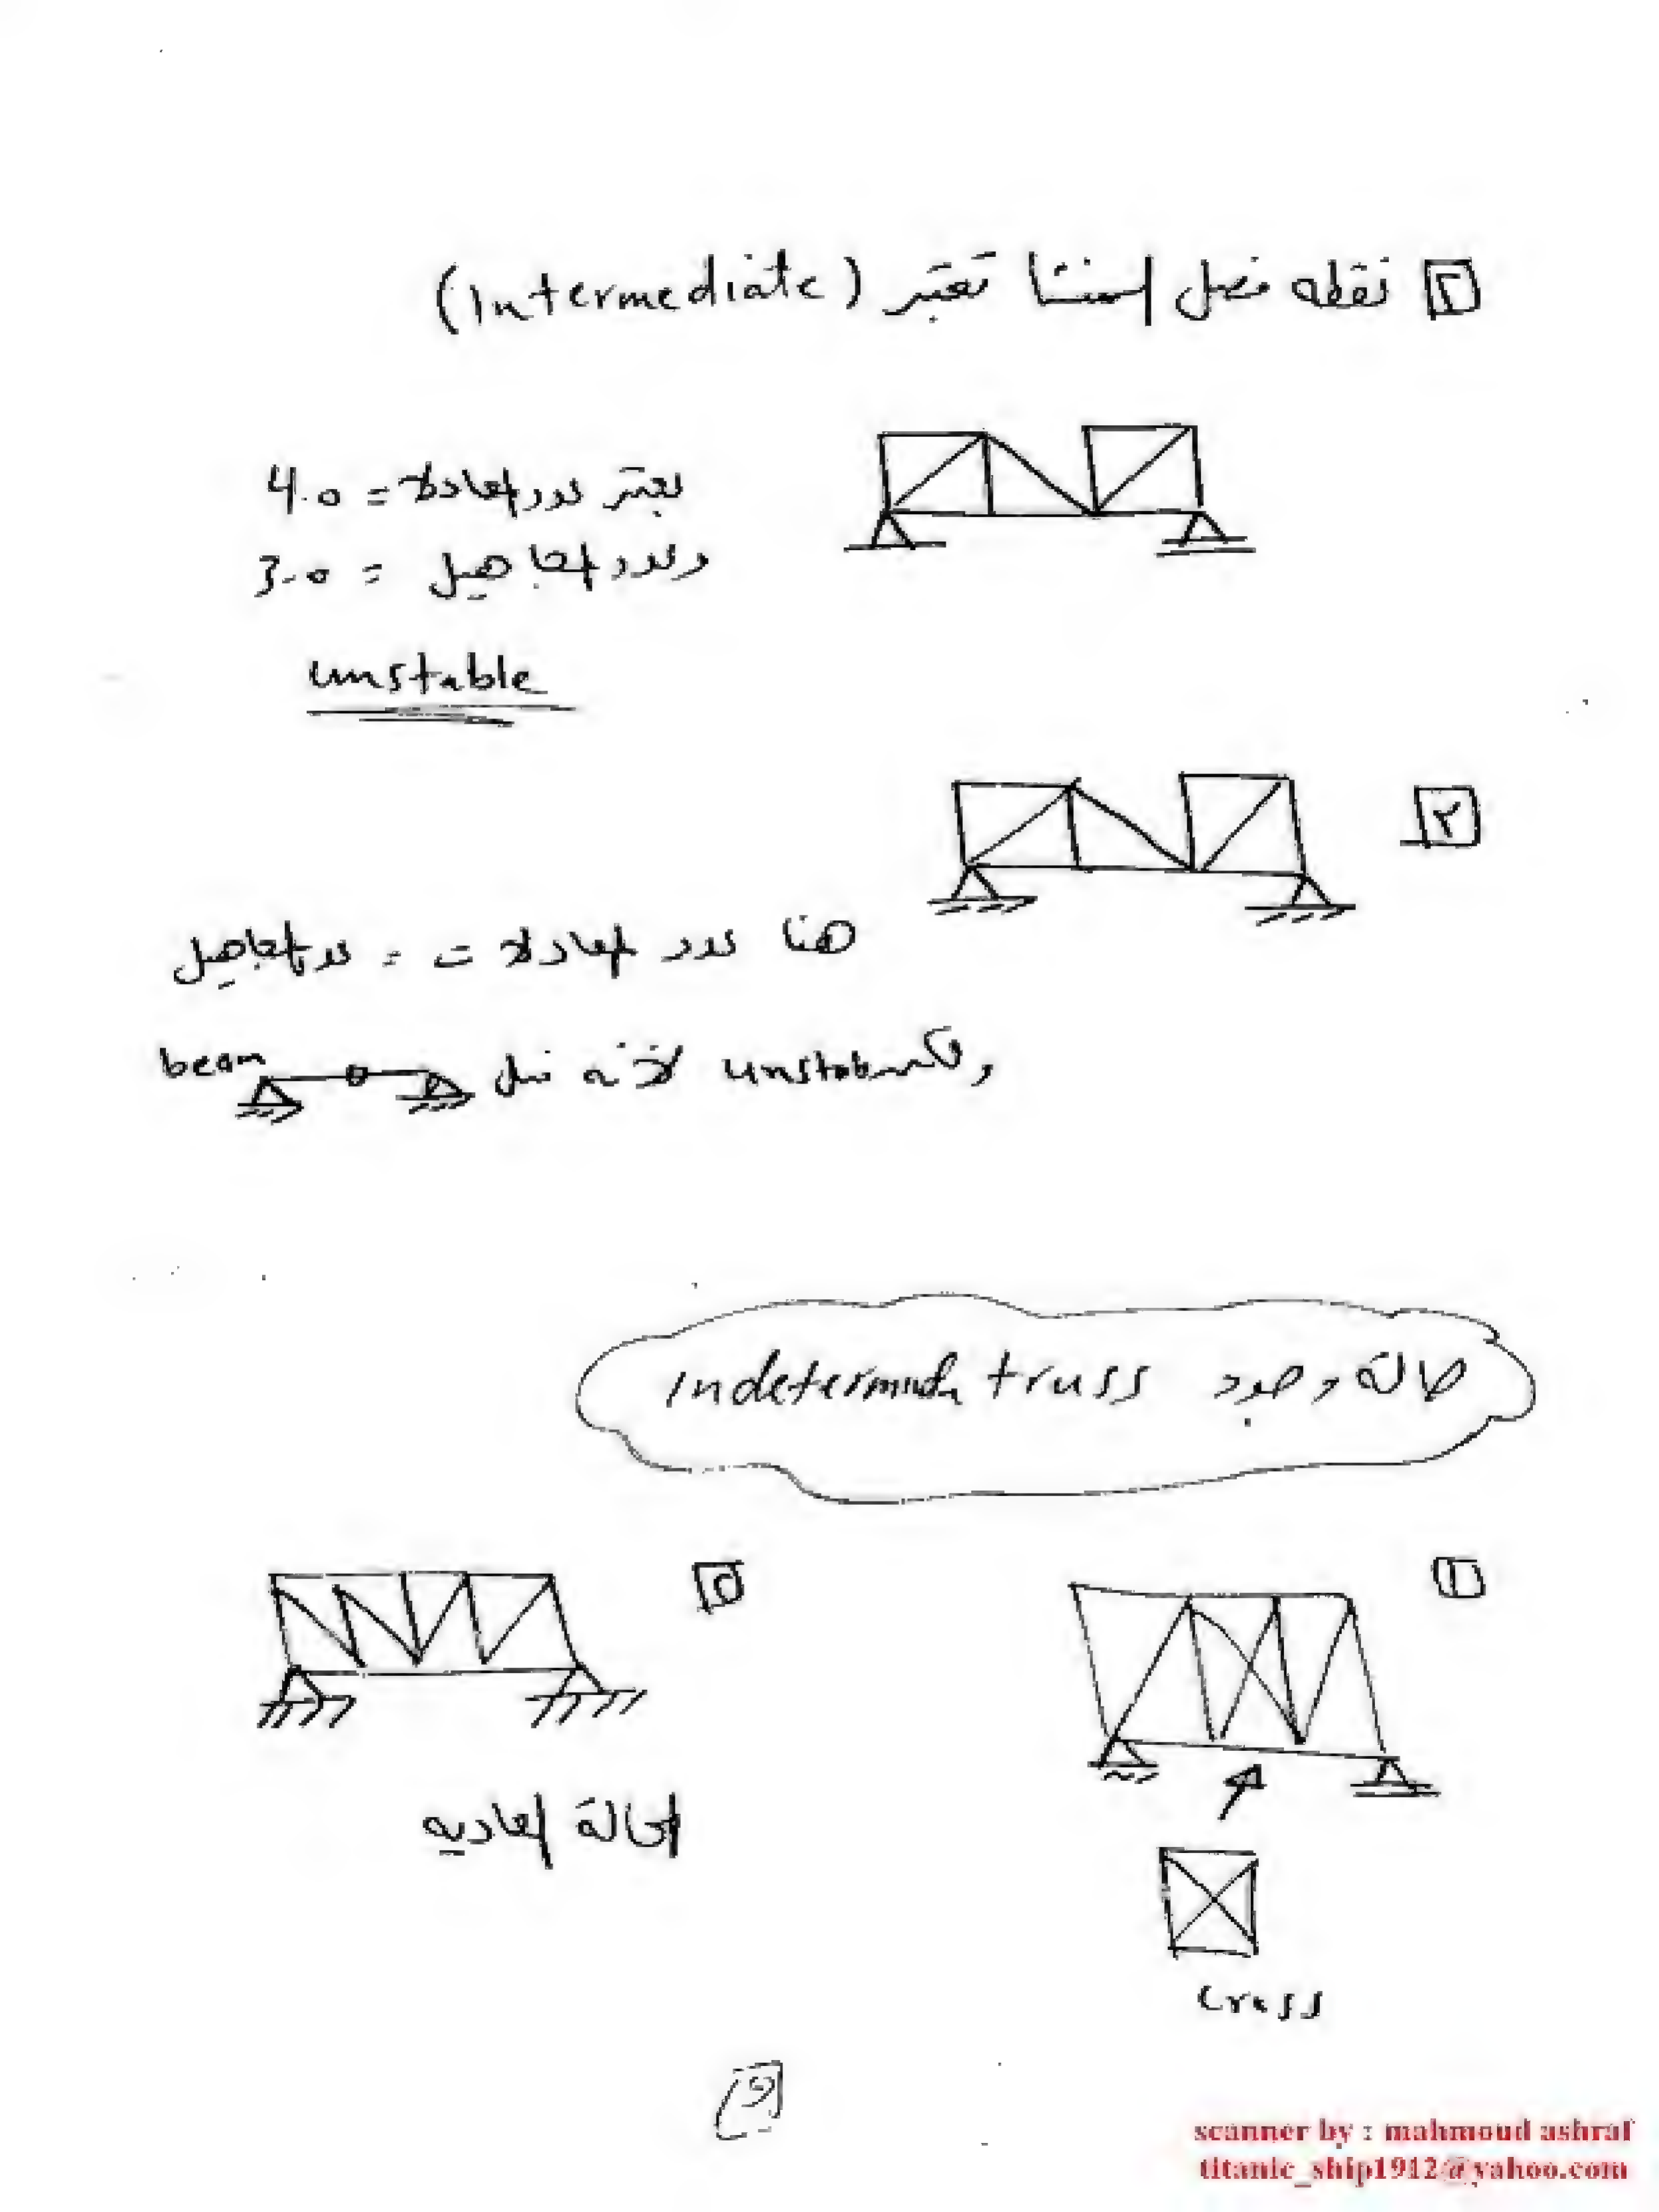 ٢ نقطه فصل المنشا تعتبر (Intermediate)
نعتبر عدد المعادلات = 4.0
وعدد المجاهيل = 3.0
unstable
٣
هنا عدد المعادلات = عدد المجاهيل
ولكن unstable لأنه مثل beam
حالة وجود Indeterminate truss
١
الحالة العاديه
cross
scanner by : mahmoud ashraf
titanic_ship1912@yahoo.com